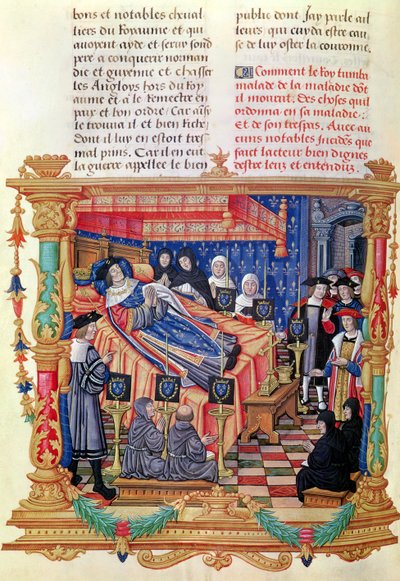 bons et notables cheual
liers du Royaume et qui
auoyent ayde et seruy son
pere a conquerir norman
die et guyenne et chasser
les Angloys hors du Roy
aume et a le remectre en
paix et bon ordre Car ainsi
le trouua il et bien riche
Dont il luy en est tres
mal prins. Car il en eut
la guerre appellee le bien
public dont Jay parle ail
leurs qui cuyda estre cau
se de luy oster la couronne.
Comment le Roy tumba
malade de la maladie dot
il mourut. Des choses quil
ordonna en sa maladie
Et de son trespas. Auec au
cuns notables Incides que
fait lacteur bien dignes
destre leuz et entenduz.